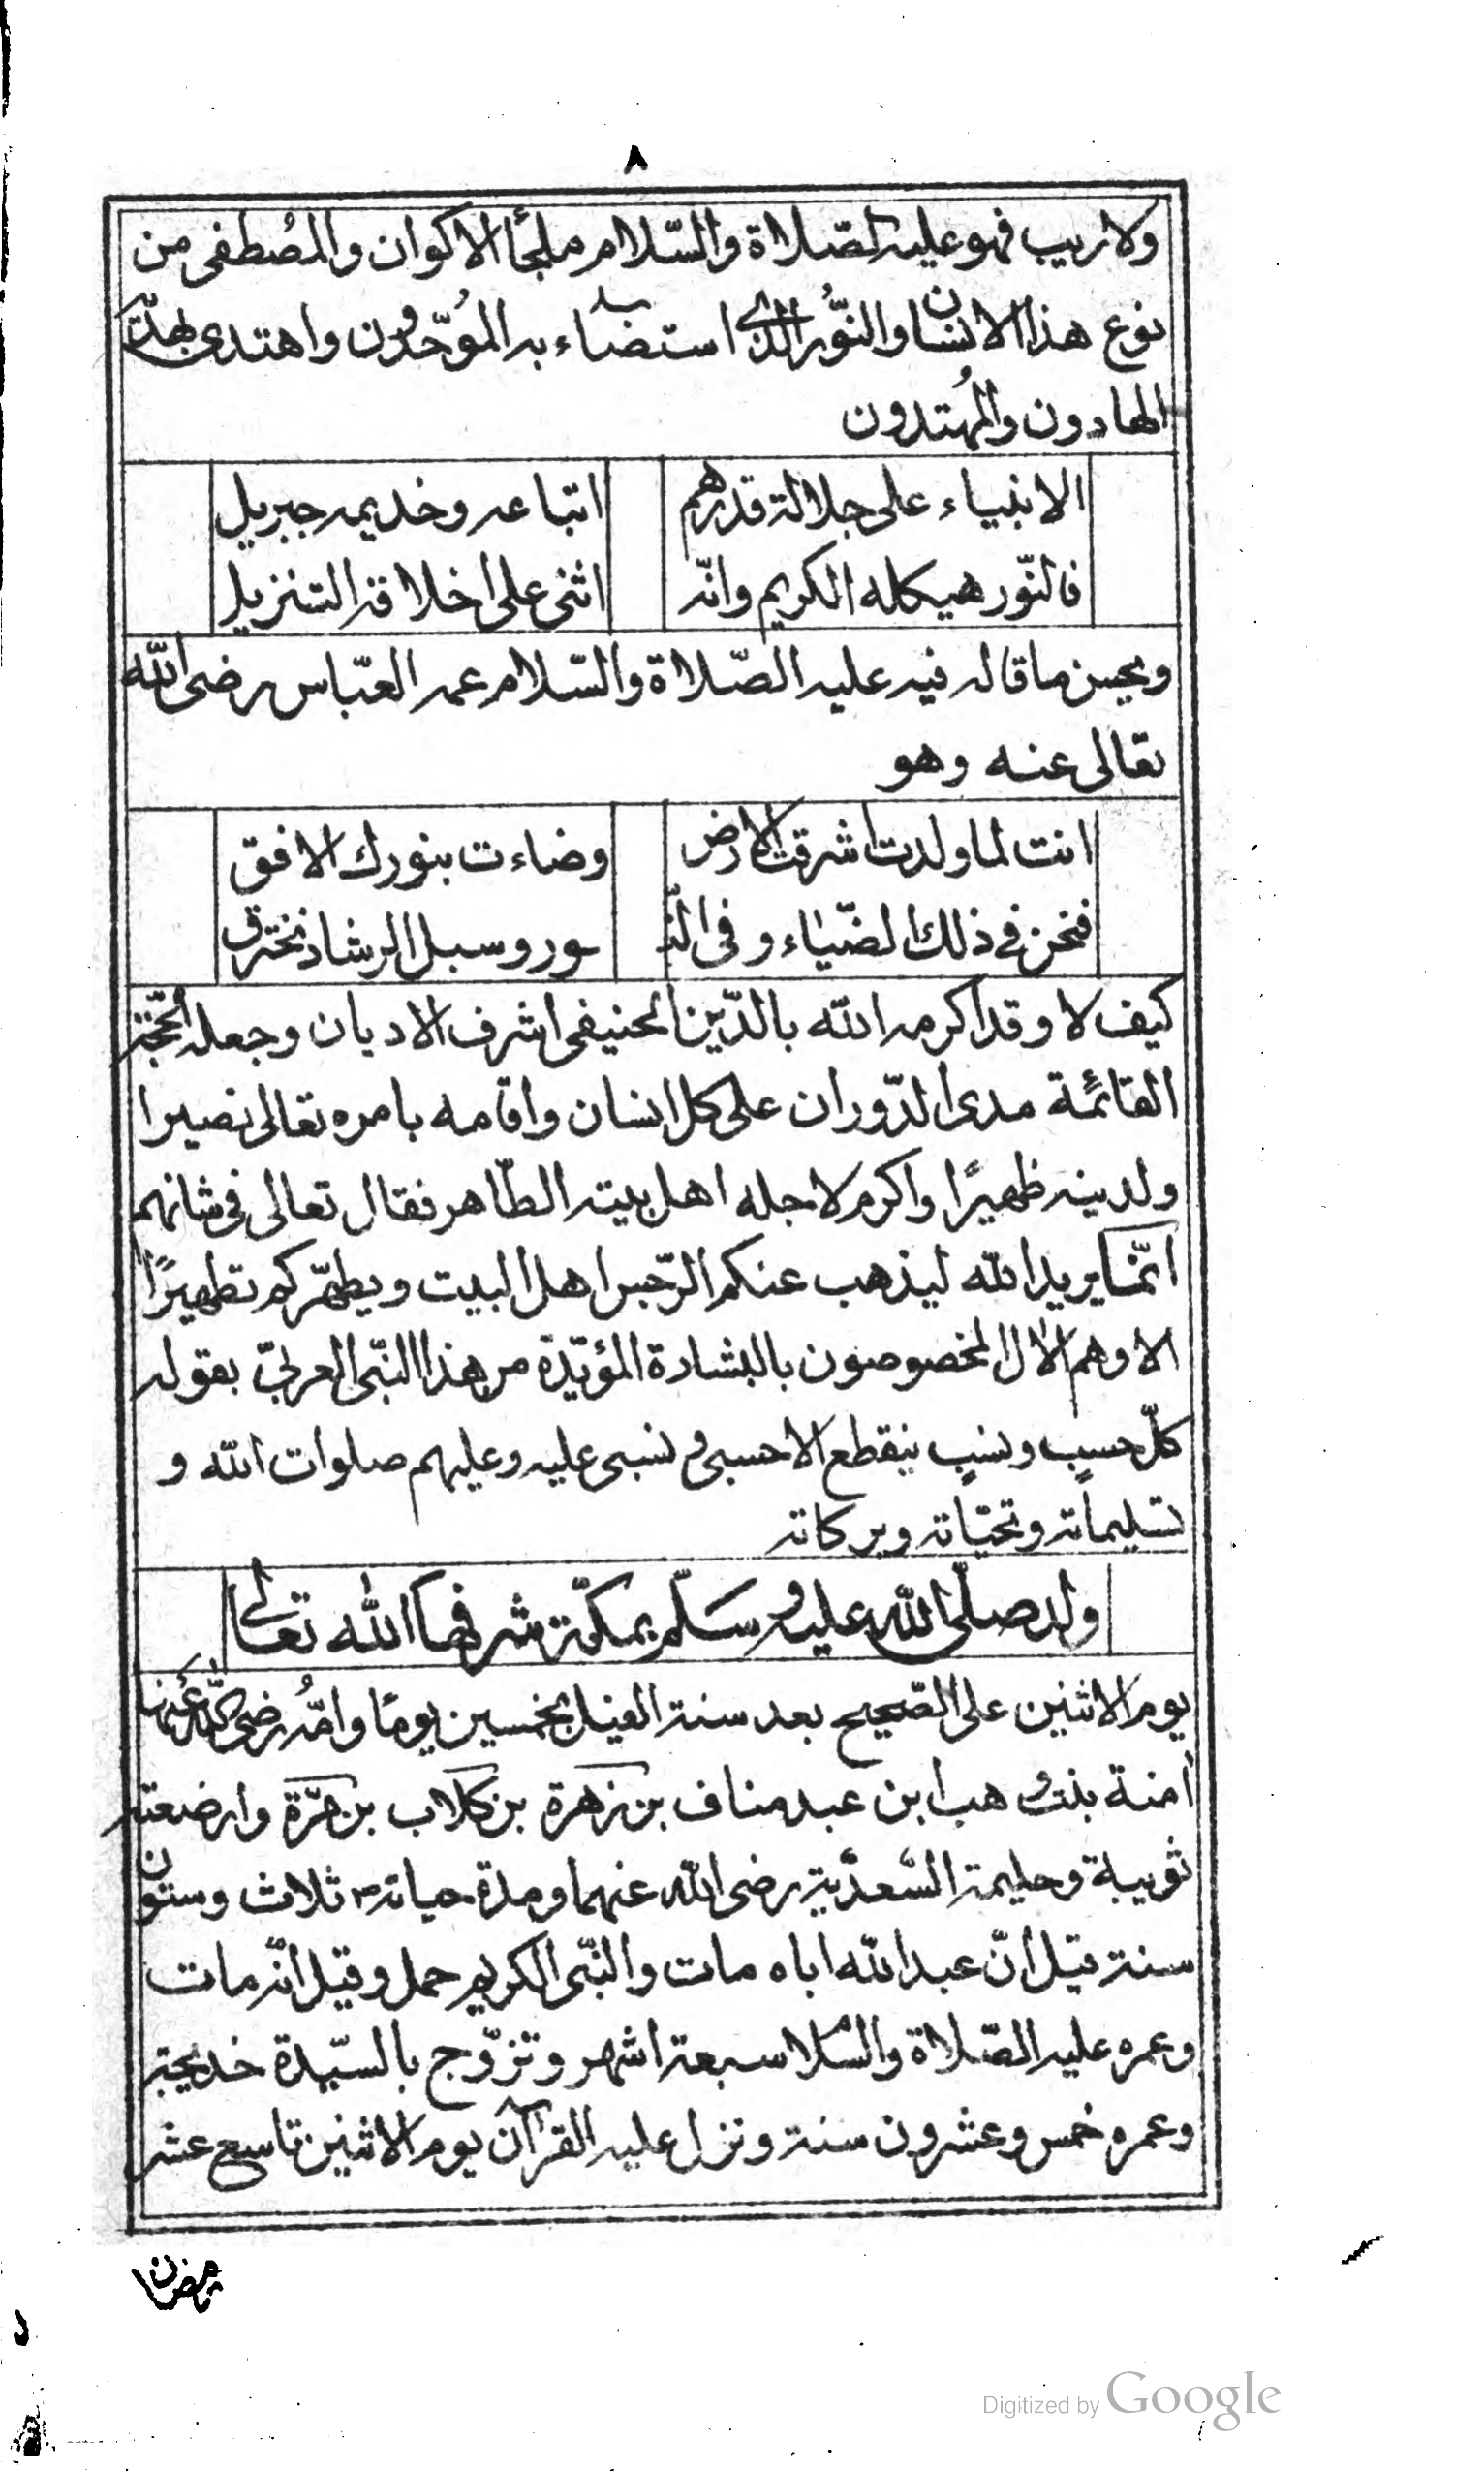 ٨
ولاريب فهو عليه الصّلاة والسّلام ملجأ الاكوان والمُصطفى من
نوع هذا الانسان والنُّور الذى استضاء به المُوحّدُون واهتدى بهديه
الهادون والمُهتدون
الانبياء على جلالة قدرهم اتباعه وخديمه جبريل
فالنّور هيكله الكريم وانّه اثنى على اخلاقه التنزيل
ويحسن ما قاله فيه عليه الصّلاة والسّلام عمه العبّاس رضى الله
تعالى عنه وهو
انت لما ولدت اشرقت الارض وضاءت بنورك الافق
فنحن فى ذلك الضّياء وفى النّـ ـور وسبل الرشاد نخترق
كيف لا وقد اكرمه الله بالدّين الحنيفى اشرف الاديان وجعله الحجّة
القائمة مدى الدّوران على كل انسان واقامه بامره تعالى نصيرا
ولدينه ظهيرًا واكرم لاجله اهل بيته الطّاهر فقال تعالى فى شانهم
انّما يريد الله ليذهب عنكم الرّجس اهل البيت ويطهّركم تطهيرًا
الا وهم الآل المخصوصون بالبشارة المؤيّدة من هذا النّبى العربىّ بقوله
كلّ حسبٍ ونسبٍ ينقطع الا حسبى ونسبى عليه وعليهم صلوات الله و
تسليماته وتحيّاته وبركاته
ولد صلّى الله عليه وسَلّم بمكّة شرفها الله تعالى
يوم الاثنين على الصّحيح بعد سنة الفيل بخمسين يومًا وامُّه رضى الله عنها
آمنة بنت وهب ابن عبد مناف بن زهرة بن كلاب بن مرّة وارضعته
ثويبة وحليمة السّعديّة رضى الله عنهما ومدة حياته ثلاث وستون
سنة قيل انّ عبد الله اباه مات والنّبى الكريم حمل وقيل انّه مات
وعمره عليه الصّلاة والسّلام سبعة اشهر وتزوّج بالسيّدة خديجة
وعمره خمس وعشرون سنة ونزل عليه القرآن يوم الاثنين تاسع عشر
رمضان
Digitized by Google